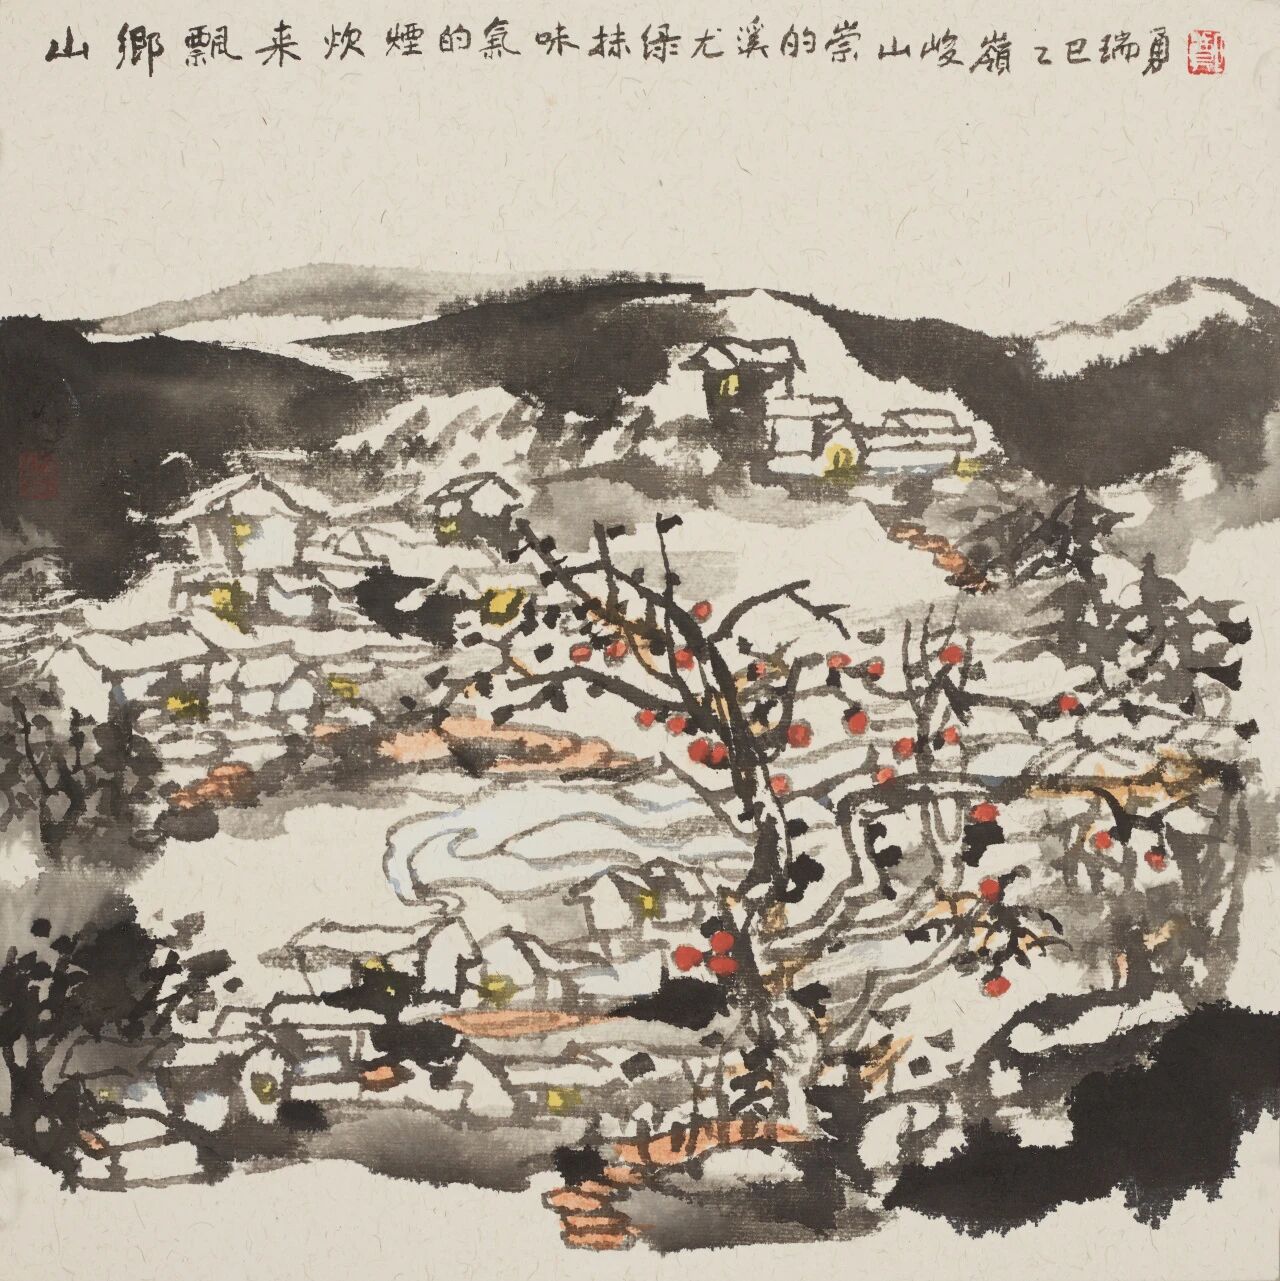 山鄉飄来炊煙的氣味抹绿尤溪的崇山峻嶺乙巳瑞勇